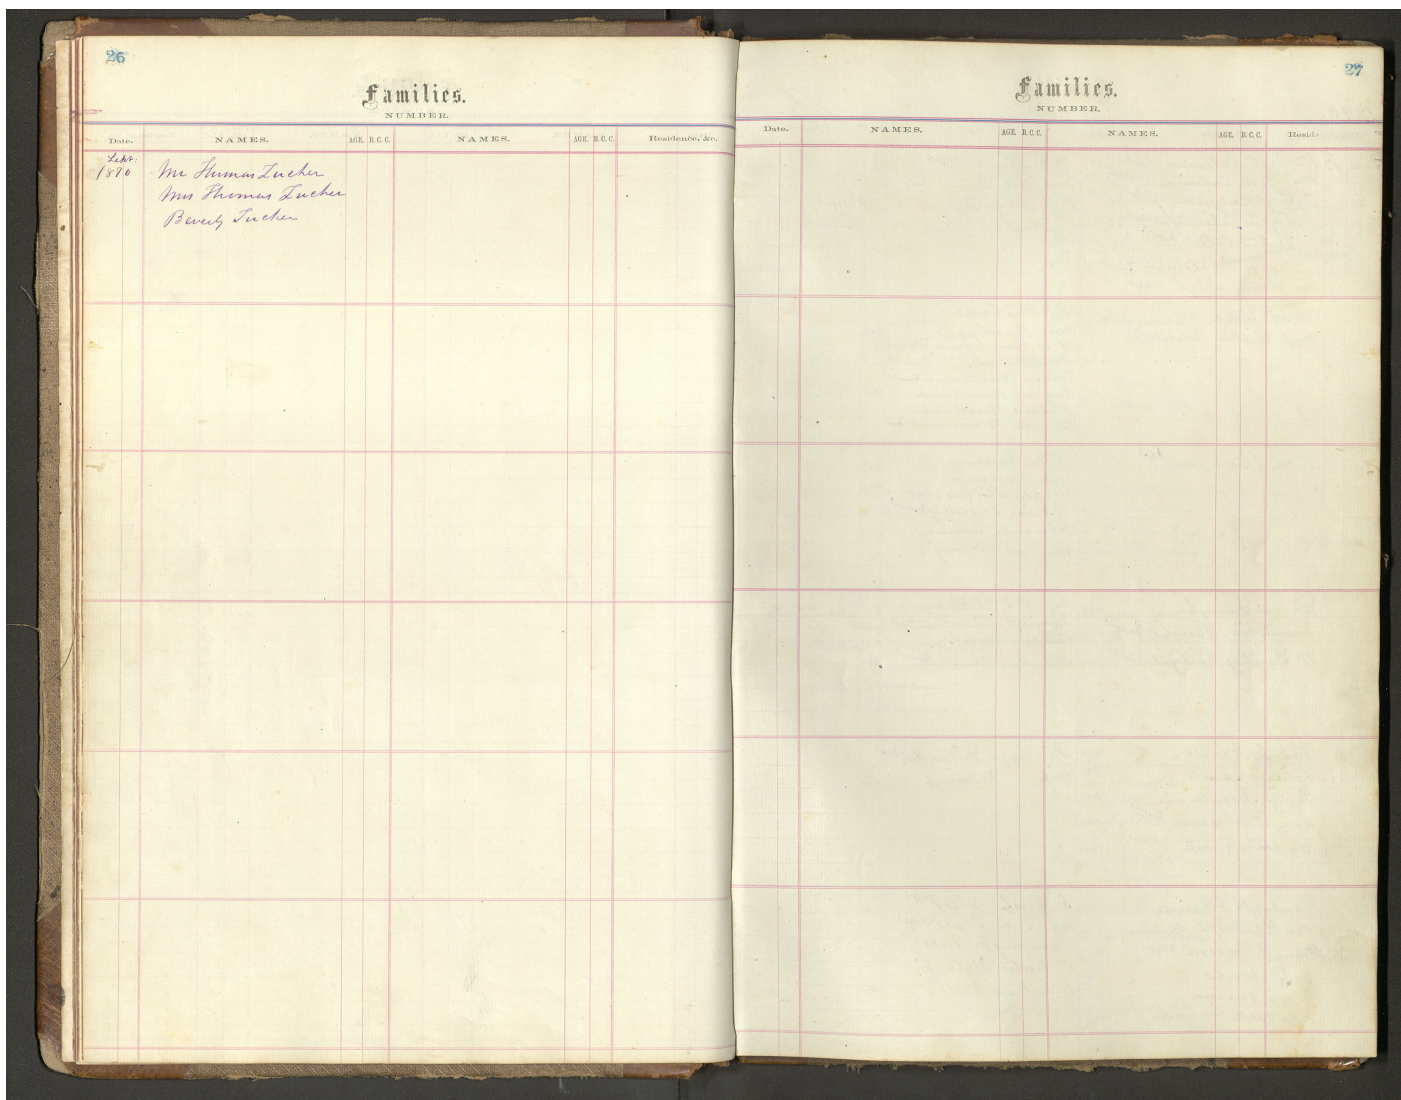 26
Families.
NUMBER.
Date. NAMES. AGE. B. C. C. NAMES. AGE. B. C. C. Residence, &c.
Sept:
1870 Mr Thomas Tucker
Mrs Thomas Tucker
Beverly Tucker
27
Families.
NUMBER.
Date. NAMES. AGE. B. C. C. NAMES. AGE. B. C. C. Resid